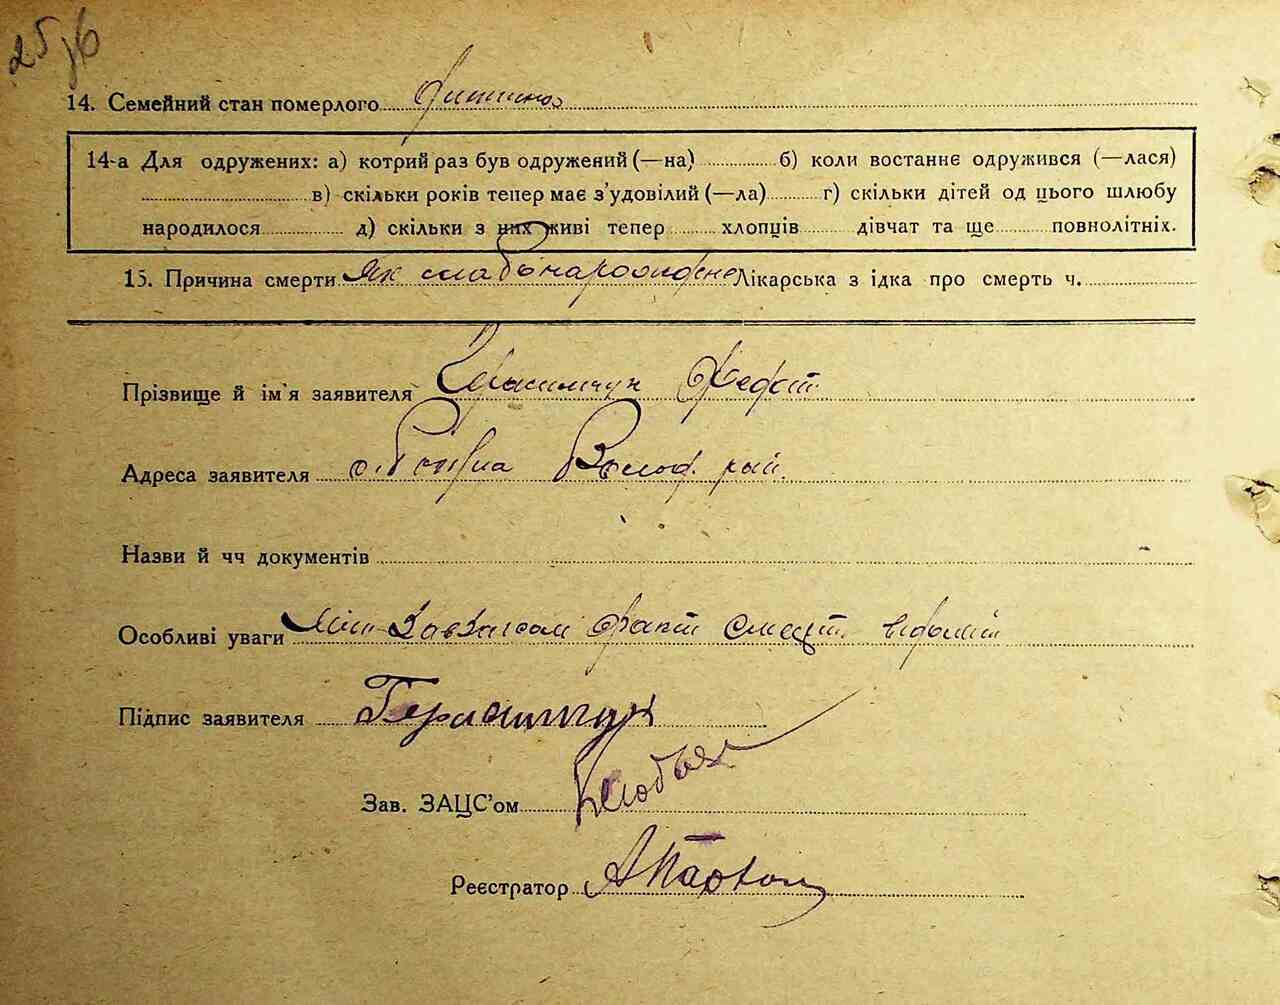 14. Семейний стан померлого дитина
14-а Для одружених: а) котрий раз був одружений (—на) б) коли востаннє одружився (—лася)
в) скільки років тепер має з'удовілий (—ла) г) скільки дітей од цього шлюбу
народилося д) скільки з них живі тепер хлопців дівчат та ще повнолітніх.
15. Причина смерти як слабонароджене Лікарська з ідка про смерть ч.
Прізвище й ім'я заявителя Герасимчук Федот
Адреса заявителя с. Волод. рай.
Назви й чч документів
Особливі уваги факт смерт. відоміт
Підпис заявителя Герасимчук
Зав. ЗАЦС'ом
Реєстратор